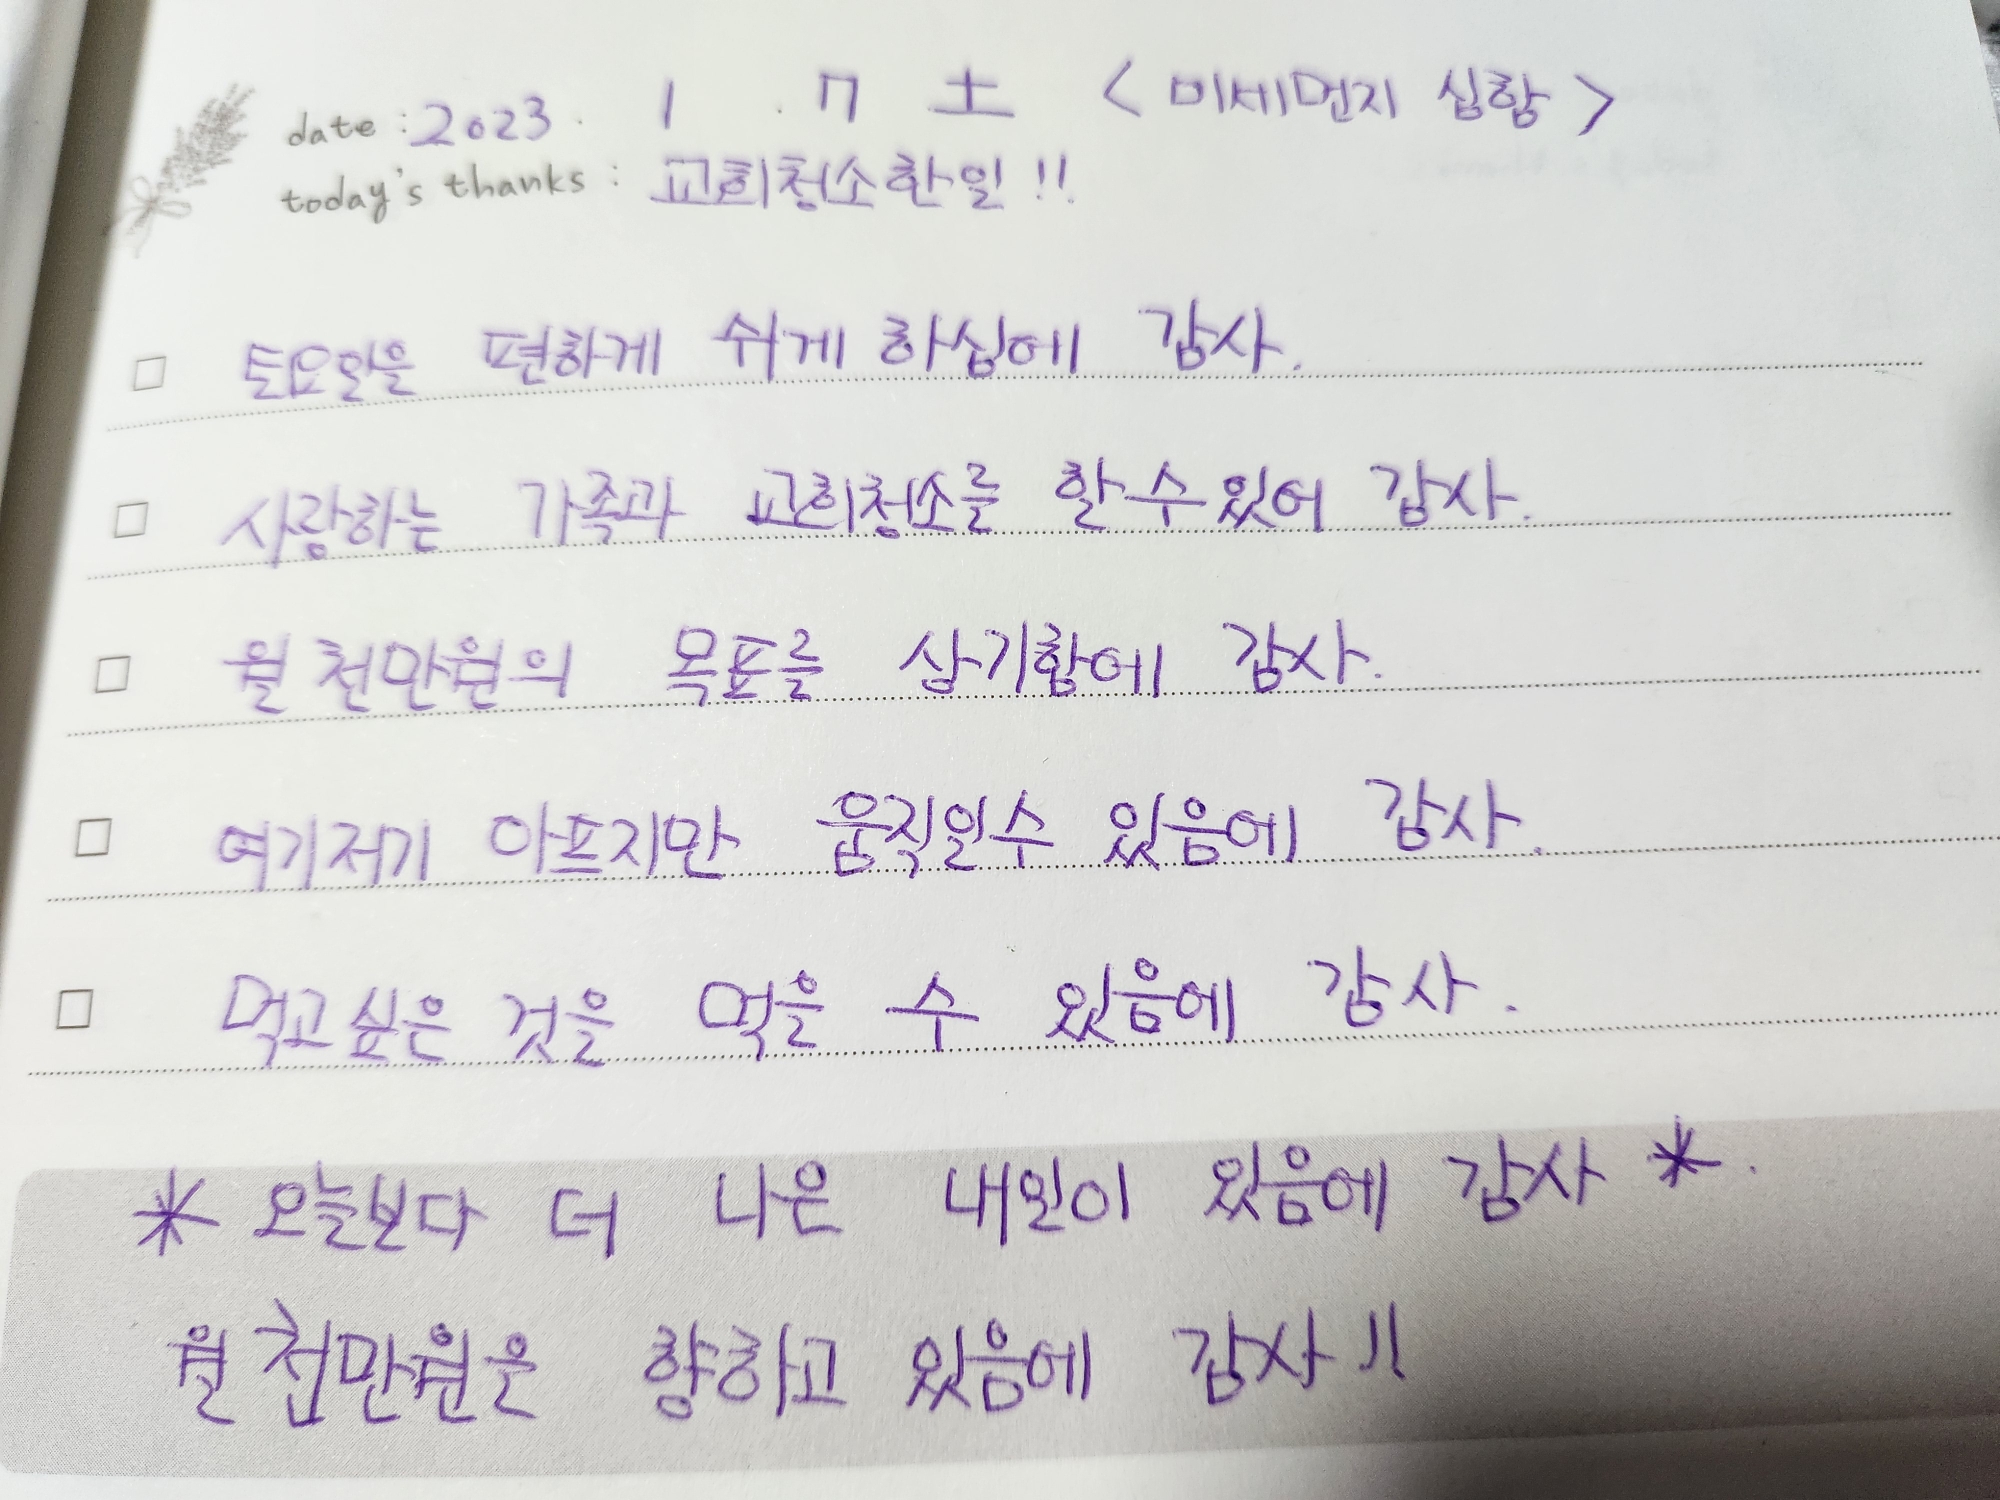 date : 2023. 1 . 7 土 < 미세먼지 심함 >
today's thanks : 교회청소한일!!
□ 토요일을 편하게 쉬게 하심에 감사.
□ 사랑하는 가족과 교회청소를 할 수 있어 감사.
□ 월 천만원의 목표를 상기함에 감사.
□ 여기저기 아프지만 움직일수 있음에 감사.
□ 먹고싶은 것을 먹을 수 있음에 감사.
* 오늘보다 더 나은 내일이 있음에 감사 *.
월 천만원은 향하고 있음에 감사!!